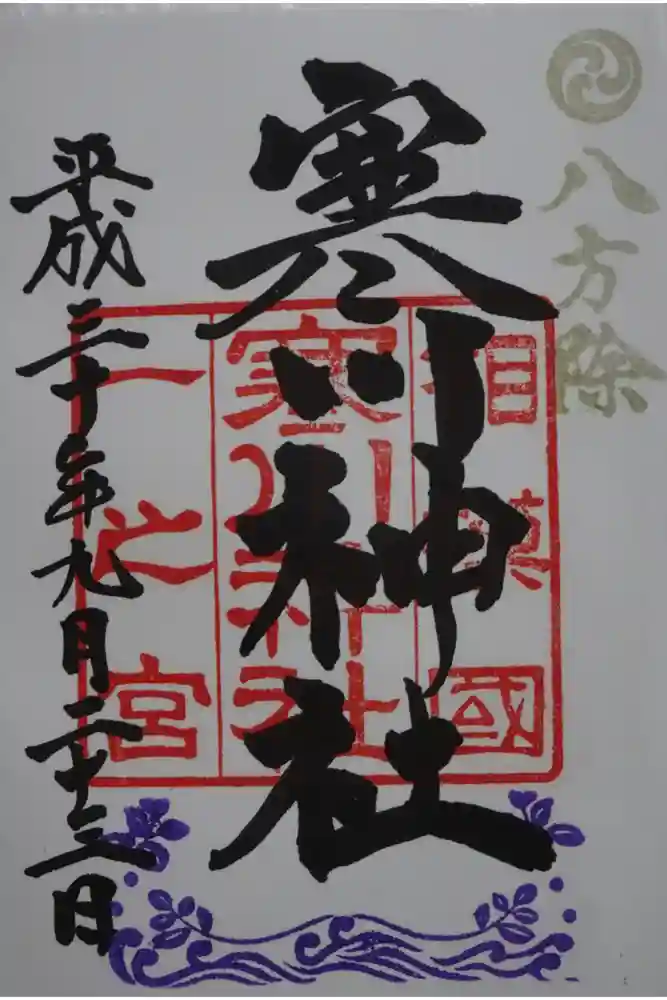 八方除
寒川神社
相模國
寒川神社
一之宮
平成三十年九月二十三日